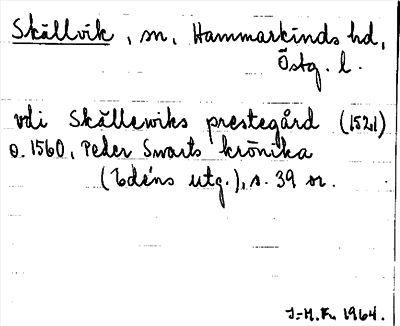 Skällvik, sn, Hammarkinds hd,
Östg. l.
vdi Skällewiks prestegård (1521)
o. 1560, Peder Swarts krönika
(Edéns utg.), s. 39 or.
J-H.F. 1964.